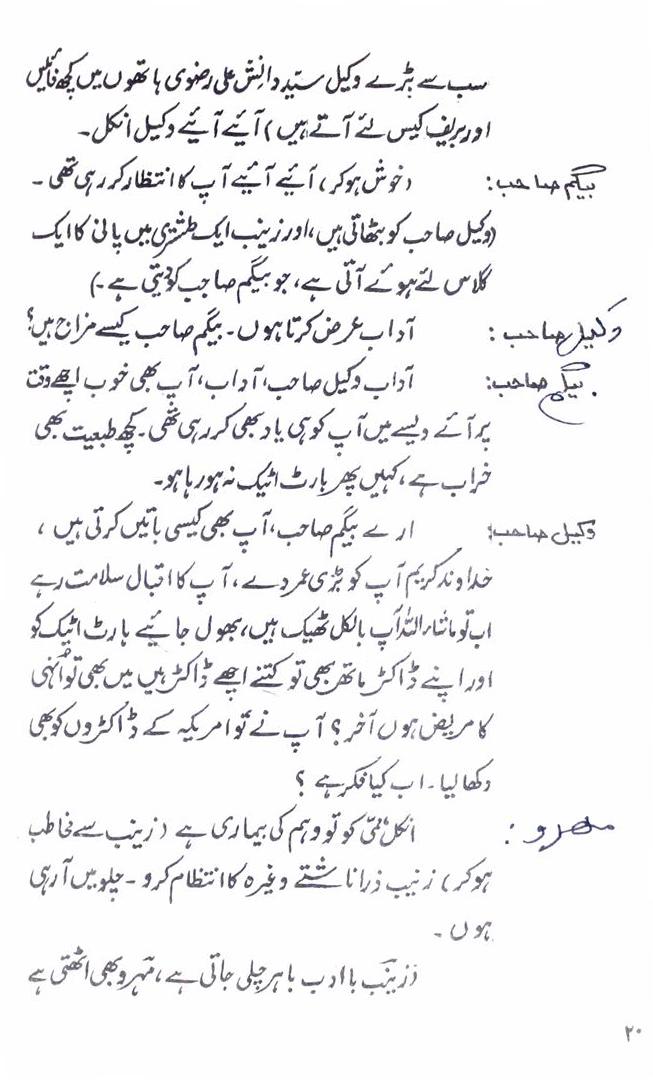 سب سے بڑے وکیل سیّد دانش علی رضوی ہاتھوں میں کچھ فائیلیں
اور بریف کیس لئے آتے ہیں) آئیے آئیے وکیل انکل۔
بیگم صاحب: (خوش ہو کر) آئیے آئیے آپ کا انتظار کر رہی تھی۔
(وکیل صاحب کو بٹھاتی ہیں، اور زینب ایک طشتری میں پانی کا ایک
گلاس لئے ہوئے آتی ہے، جو بیگم صاحب کو دیتی ہے۔)
وکیل صاحب: آداب عرض کرتا ہوں۔ بیگم صاحب کیسے مزاج ہیں؟
بیگم صاحب: آداب وکیل صاحب، آداب، آپ بھی خوب اچھے وقت
پر آئے ویسے میں آپ کو ہی یاد بھی کر رہی تھی۔ کچھ طبیعت بھی
خراب ہے، کہیں پھر ہارٹ اٹیک نہ ہو رہا ہو۔
وکیل صاحب: ارے بیگم صاحب، آپ بھی کیسی باتیں کرتی ہیں،
خداوند کریم آپ کو بڑی عمر دے، آپ کا اقبال سلامت رہے
اب تو ماشاء اللہ آپ بالکل ٹھیک ہیں، بھول جائیے ہارٹ اٹیک کو
اور اپنے ڈاکٹر ماتھر بھی تو کتنے اچھے ڈاکٹر ہیں میں بھی تو اُنہی
کا مریض ہوں آخر؟ آپ نے تو امریکہ کے ڈاکٹروں کو بھی
دکھا لیا۔ اب کیا فکر ہے؟
مہرو: انکل ممّی کو تو وہم کی بیماری ہے (زینب سے مخاطب
ہو کر) زینب ذرا ناشتے وغیرہ کا انتظام کرو۔ چلو میں آ رہی
ہوں۔
(زینب با ادب باہر چلی جاتی ہے، مہرو بھی اٹھتی ہے
۲۰